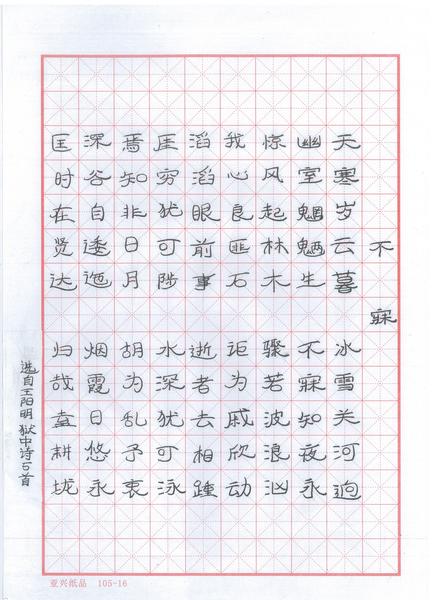 不寐
天寒岁云暮 冰雪关河迥
幽室魍魉生 不寐知夜永
惊风起林木 骤若波浪汹
我心良匪石 讵为戚欣动
滔滔眼前事 逝者去相踵
厓穷犹可陟 水深犹可泳
焉知非日月 胡为乱予衷
深谷自逶迤 烟霞日悠永
匡时在贤达 归哉盍耕垅
选自王阳明狱中诗5首
亚兴纸品 105-16